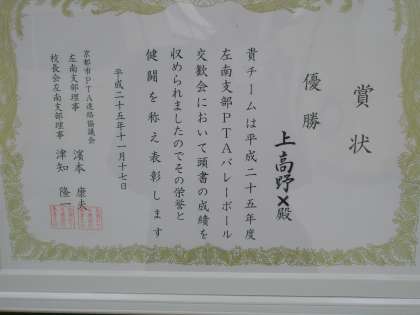 賞状
優勝
上高野×殿
貴チームは平成二十五年度
左南支部PTAバレーボール
交歓会において頭書の成績を
収められましたのでその栄誉と
健闘を称え表彰します
平成二十五年十一月十七日
京都市PTA連絡協議会
左南支部理事 濱本康夫
校長会左南支部理事 津知隆一